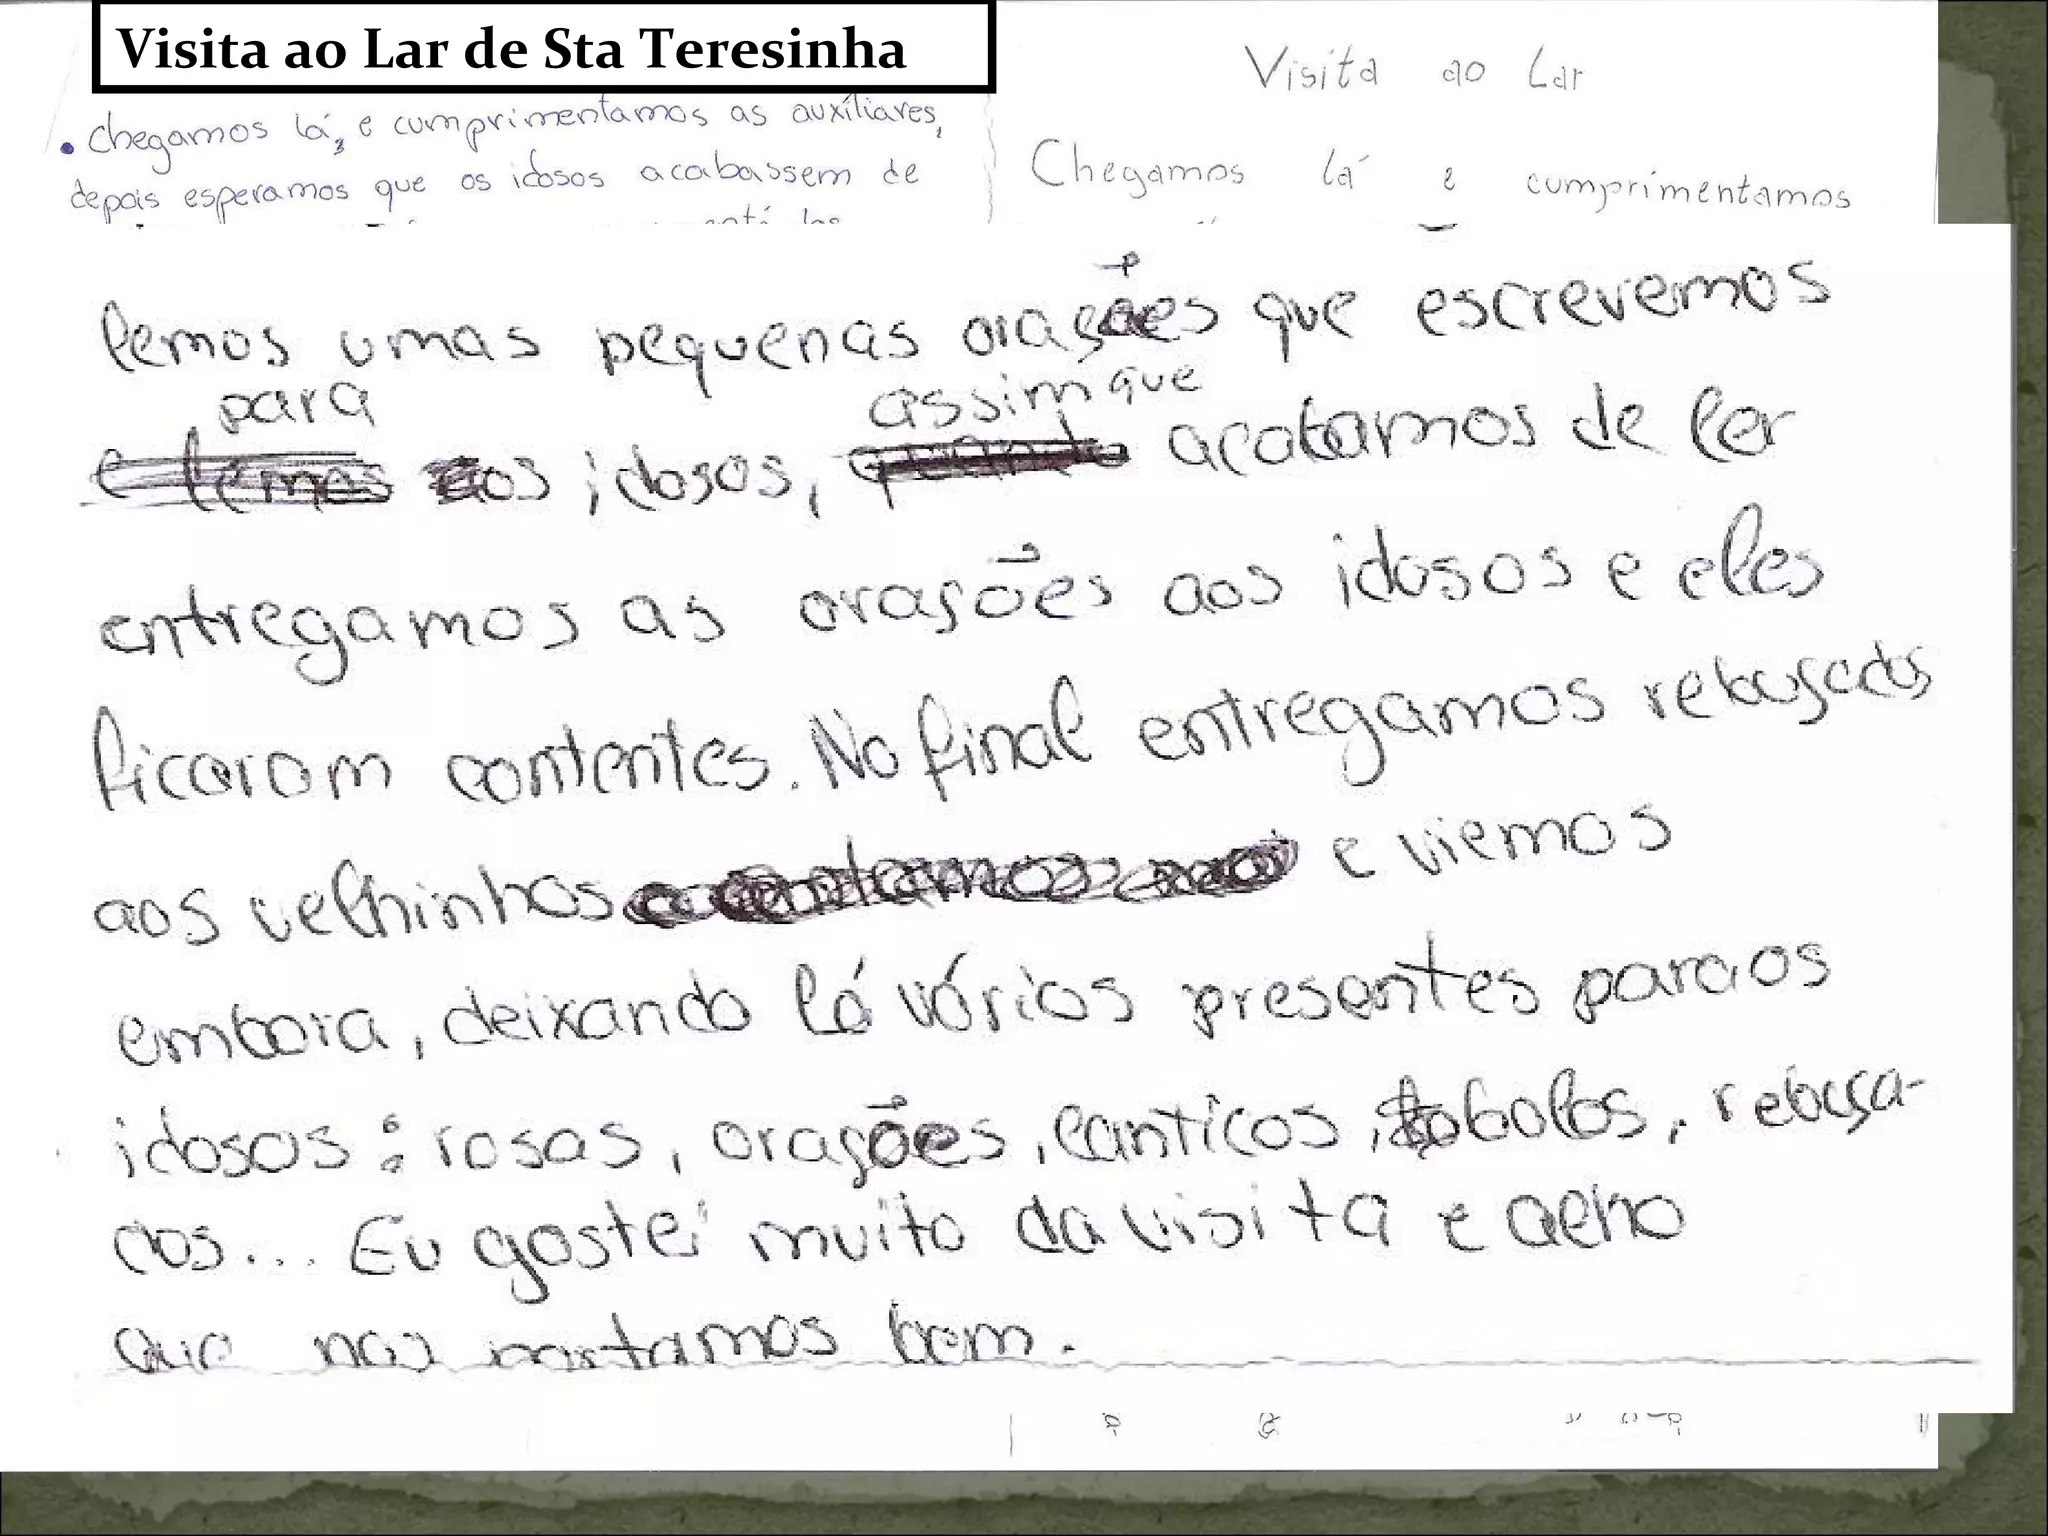 Visita ao Lar de Sta Teresinha
• Chegamos lá, e cumprimentamos as auxíliares,
depois esperamos que os idosos acabassem de
Visita ao Lar
Chegamos lá e cumprimentamos
lemos umas pequenas orações que escrevemos
para assim que
e lemos aos idosos, quando acabamos de ler
entregamos as orações aos idosos e eles
ficaram contentes. No final entregamos rebuçados
aos velhinhos e viemos
embora, deixando lá vários presentes para os
idosos: rosas, orações, canticos, bolos, rebuça-
dos... Eu gostei muito da visita e acho
que nos portamos bem.